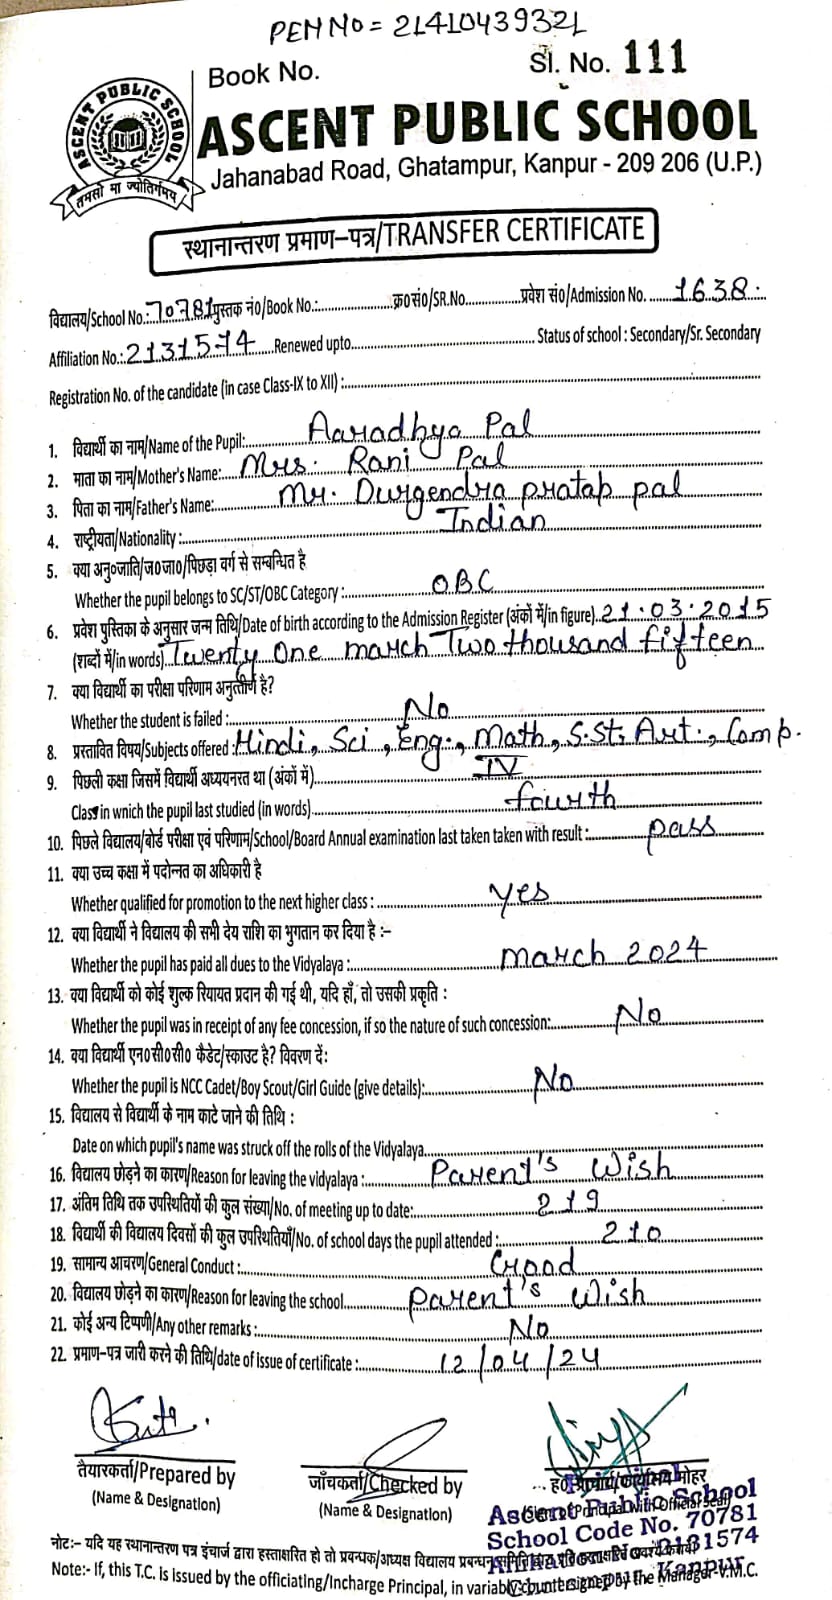 PEN NO = 21410439321
Book No.
Sl. No. 111
ASCENT PUBLIC SCHOOL
तमसो मा ज्योतिर्गमय
ASCENT PUBLIC SCHOOL
Jahanabad Road, Ghatampur, Kanpur - 209 206 (U.P.)
स्थानान्तरण प्रमाण–पत्र/TRANSFER CERTIFICATE
विद्यालय/School No.: 70781 पुस्तक नं०/Book No.: क्र०सं०/SR.No. प्रवेश सं०/Admission No. 1638
Affiliation No.: 2131574 Renewed upto Status of school : Secondary/Sr. Secondary
Registration No. of the candidate (in case Class-IX to XII) :
1. विद्यार्थी का नाम/Name of the Pupil: Aaradhya Pal
2. माता का नाम/Mother's Name: Mrs. Rani Pal
3. पिता का नाम/Father's Name: Mr. Durgendra pratap pal
4. राष्ट्रीयता/Nationality : Indian
5. क्या अनु०जाति/ज०जा०/पिछड़ा वर्ग से सम्बन्धित है
Whether the pupil belongs to SC/ST/OBC Category : OBC
6. प्रवेश पुस्तिका के अनुसार जन्म तिथि/Date of birth according to the Admission Register (अंकों में/in figure) 21.03.2015
(शब्दों में/in words) Twenty One march Two thousand fifteen
7. क्या विद्यार्थी का परीक्षा परिणाम अनुत्तीर्ण है?
Whether the student is failed : No
8. प्रस्तावित विषय/Subjects offered : Hindi, Sci, Eng., Math, S.St, Art., Comp.
9. पिछली कक्षा जिसमें विद्यार्थी अध्ययनरत था (अंकों में) IV
Class in which the pupil last studied (in words) fourth
10. पिछले विद्यालय/बोर्ड परीक्षा एवं परिणाम/School/Board Annual examination last taken taken with result : pass
11. क्या उच्च कक्षा में पदोन्नत का अधिकारी है
Whether qualified for promotion to the next higher class : yes
12. क्या विद्यार्थी ने विद्यालय की सभी देय राशि का भुगतान कर दिया है :–
Whether the pupil has paid all dues to the Vidyalaya : march 2024
13. क्या विद्यार्थी को कोई शुल्क रियायत प्रदान की गई थी, यदि हाँ, तो उसकी प्रकृति :
Whether the pupil was in receipt of any fee concession, if so the nature of such concession: No
14. क्या विद्यार्थी एन०सी०सी० कैडेट/स्काउट है? विवरण दें:
Whether the pupil is NCC Cadet/Boy Scout/Girl Guide (give details): No
15. विद्यालय से विद्यार्थी के नाम काटे जाने की तिथि :
Date on which pupil's name was struck off the rolls of the Vidyalaya
16. विद्यालय छोड़ने का कारण/Reason for leaving the vidyalaya : Parent's Wish
17. अंतिम तिथि तक उपस्थितियों की कुल संख्या/No. of meeting up to date: 219
18. विद्यार्थी की विद्यालय दिवसों की कुल उपस्थितियाँ/No. of school days the pupil attended : 210
19. सामान्य आचरण/General Conduct : Good
20. विद्यालय छोड़ने का कारण/Reason for leaving the school Parent's Wish
21. कोई अन्य टिप्पणी/Any other remarks : No
22. प्रमाण–पत्र जारी करने की तिथि/date of issue of certificate : 12/04/24
तैयारकर्ता/Prepared by
(Name & Designation)
जाँचकर्ता/Checked by
(Name & Designation)
Principal
Ascent Public School
School Code No. 70781
Affiliation No. 2131574
Ghatampur, Kanpur
नोटः– यदि यह स्थानान्तरण पत्र इंचार्ज द्वारा हस्ताक्षरित हो तो प्रबन्धक/अध्यक्ष विद्यालय
Note:- If, this T.C. is issued by the officiating/Incharge Principal, in variably countersigned by the Manager-V.M.C.